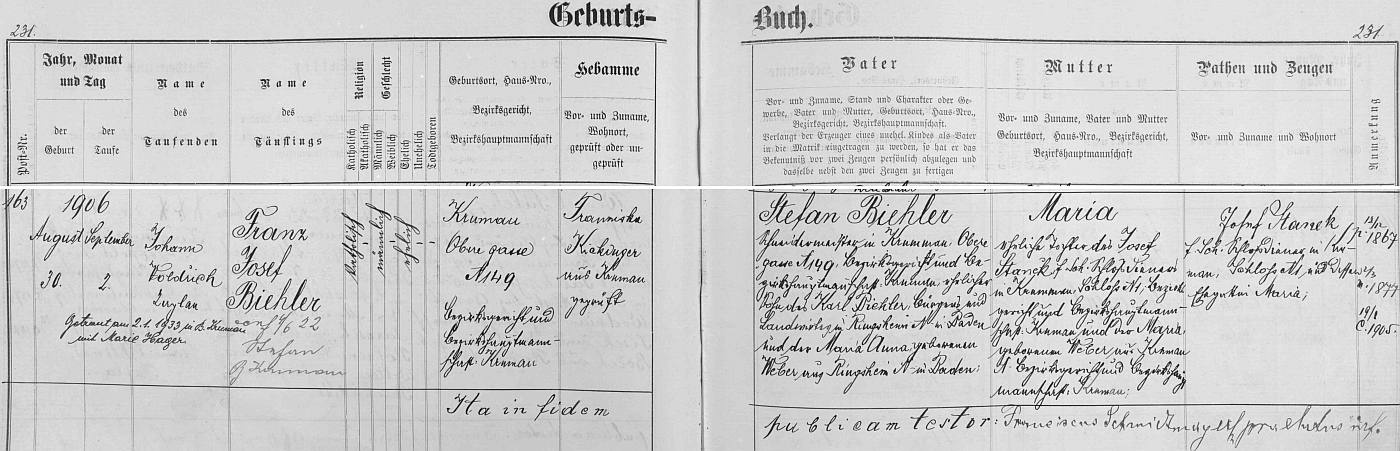 231.
Geburts-
Buch.
231
Post-Nr.
Jahr, Monat
und Tag
der
Geburt
der
Taufe
Name
des
Taufenden
Name
des
Täuflings
Religion
Katholisch
Akatholisch
Geschlecht
Männlich
Weiblich
Ehelich
Unehelich
Todtgeboren
Geburtsort, Haus-Nro.,
Bezirksgericht,
Bezirkshauptmannschaft
Hebamme
Vor- und Zuname,
Wohnort,
geprüft oder un-
geprüft
Vater
Vor- und Zuname, Stand und Charakter oder Ge-
werbe, Vater und Mutter, Geburtsort, Haus-Nro.,
Bezirksgericht, Bezirkshauptmannschaft.
Verlangt der Erzeuger eines unehel. Kindes als Vater
in die Matrik eingetragen zu werden, so hat er das
Bekenntniß vor zwei Zeugen persönlich abzulegen und
dasselbe nebst den zwei Zeugen zu fertigen
Mutter
Vor- und Zuname, Vater und Mutter
Geburtsort, Haus-Nro., Bezirksgericht,
Bezirkshauptmannschaft
Pathen und Zeugen
Vor- und Zuname und Wohnort
Anmerkung
163
1906
August September
30. 2.
Johann
Franz
Josef
Biehler
Getraut am 2.1.1933 in B. Krumau
mit Marie Hager
22
Stefan
Krumau
Katholisch
männlich
ehelich
Krumau
Obere Gasse
N 149
Bezirksgericht und
Bezirkshauptmann-
schaft Krumau
Franziska
aus Krumau
geprüft
Stefan Biehler
Schneidermeister in Krummau Obere
Gasse N 149, Bezirksgericht und Be-
zirkshauptmannschaft Krumau, ehelicher
Sohn des Karl Biehler, Bürgers und
Landwirtes in Ringsheim N in Baden
und der Maria Anna, geborenen
Weber aus Ringsheim N in Baden;
Maria
eheliche Tochter des Josef
Stanek f. Sch. Schloßdieners
in Krummau Schloß N 1, Bezirks-
gericht und Bezirkshauptmann-
schaft Krumau und der Maria
geborenen Weber aus Krumau
N Bezirksgericht und Bezirkshaupt-
mannschaft Krumau;
Josef Stanek
f. Sch. Schloßdiener in Kru-
mau, Schloß N 1, und dessen
Ehegattin Maria;
1867
1877
1905.
Ita in fidem
publicam testor: Franciscus Schmidtmayer